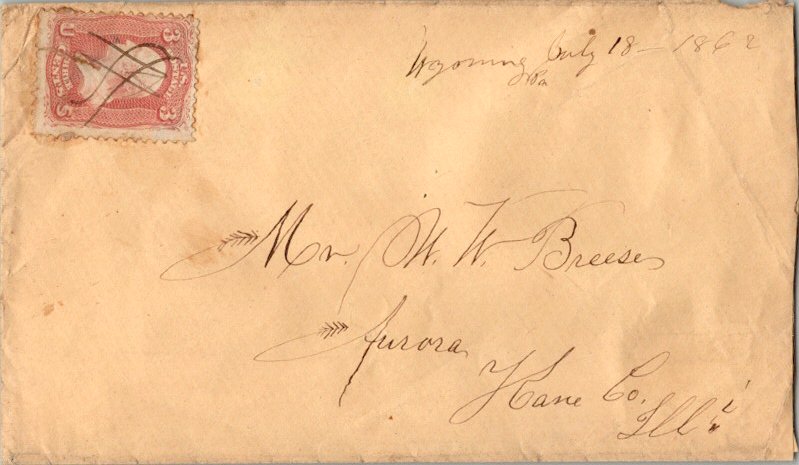 Wyoming July 18 - 1862
Pa
U 3
U.S. POSTAGE
THREE CENTS
S 3
Mr. W. W. Breese
Aurora
Kane Co.
Ill's